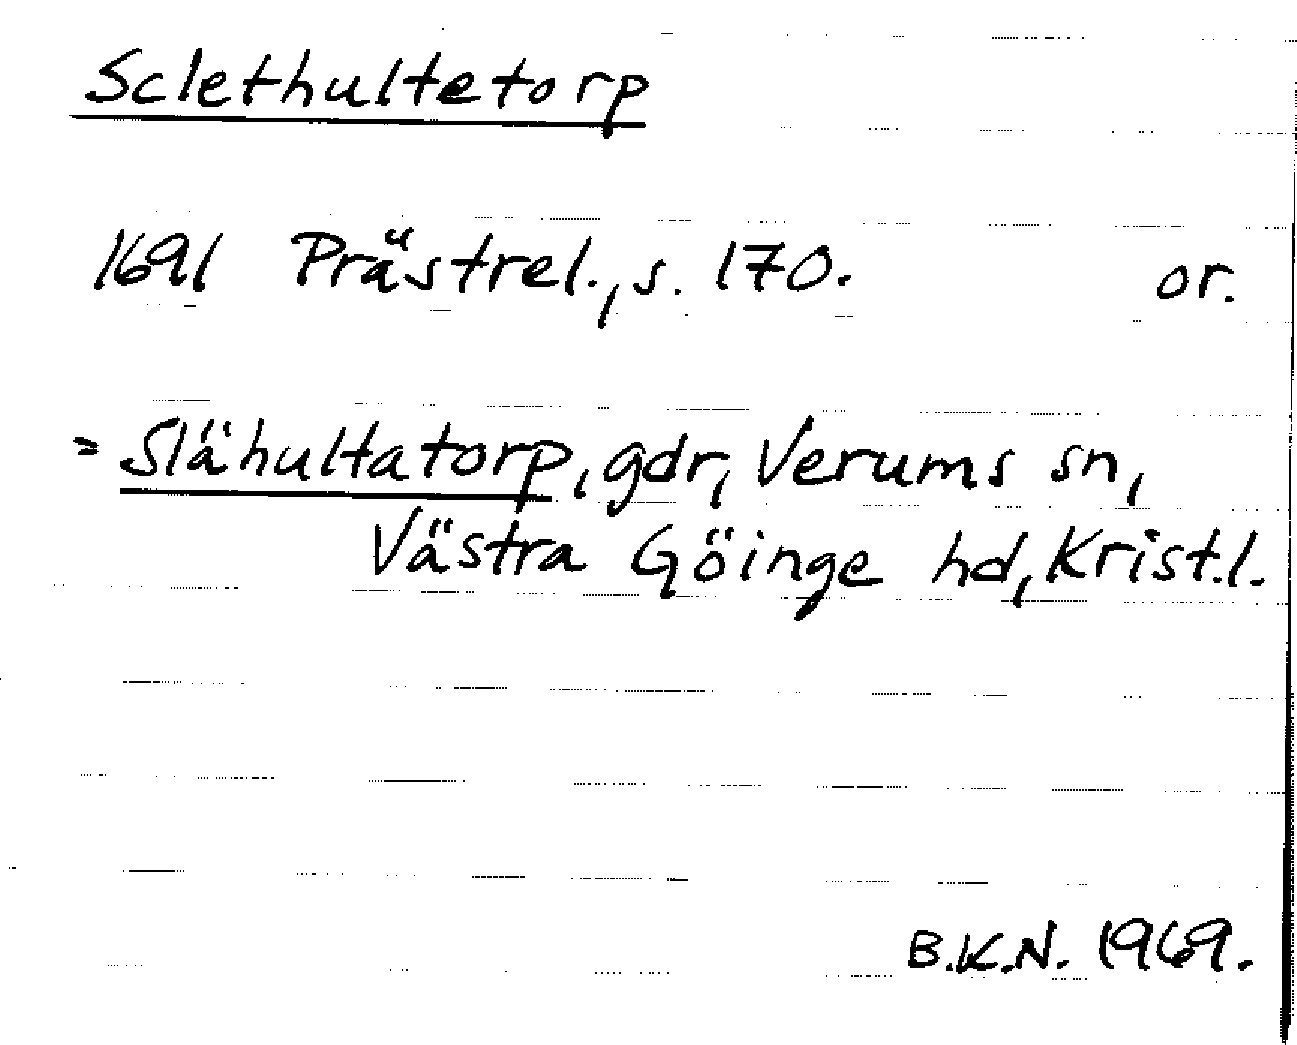 Sclethultetorp
1691 Prästrel., s. 170. or.
= Slähultatorp, gdr, Verums sn,
Västra Göinge hd, Krist.l.
B.K.N. 1969.